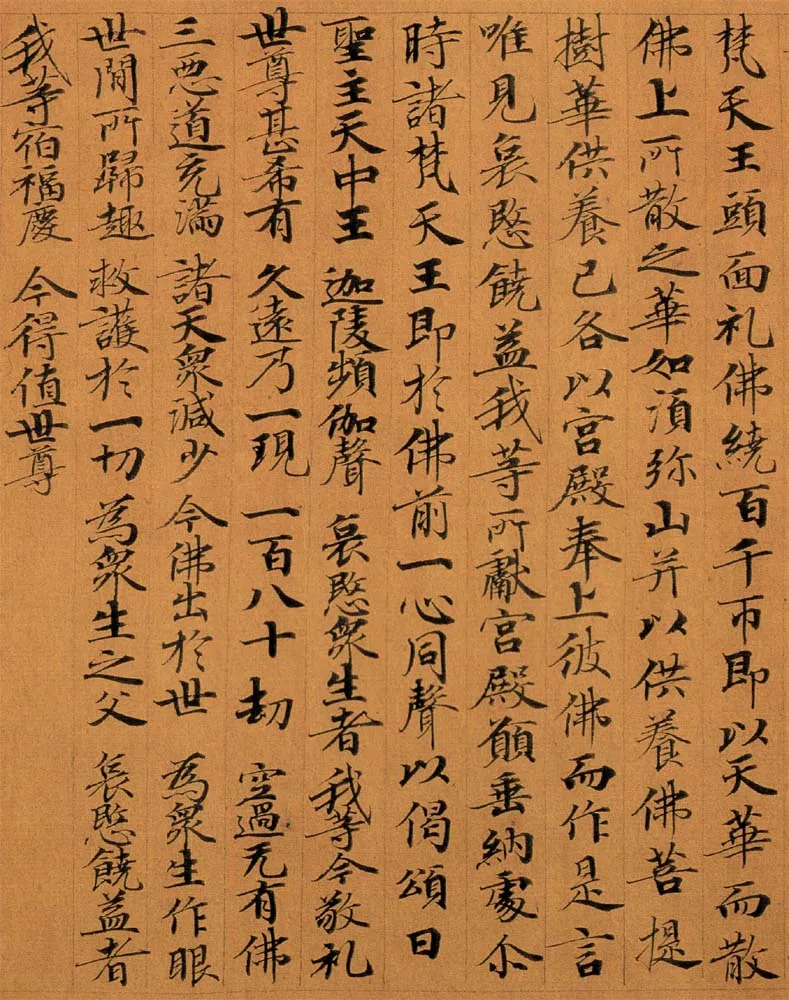 梵天王頭面礼佛繞百千帀即以天華而散
佛上所散之華如湏弥山并以供養佛菩提
樹華供養已各以宮殿奉上彼佛而作是言
唯見哀愍饒益我等所獻宮殿願垂納處尒
時諸梵天王即於佛前一心同聲以偈頌曰
聖主天中王 迦陵頻伽聲 哀愍衆生者 我等今敬礼
世尊甚希有 久遠乃一現 一百八十劫 空過无有佛
三惡道充滿 諸天衆減少 今佛出於世 為衆生作眼
世間所歸趣 救護於一切 為衆生之父 哀愍饒益者
我等宿福慶 今得值世尊